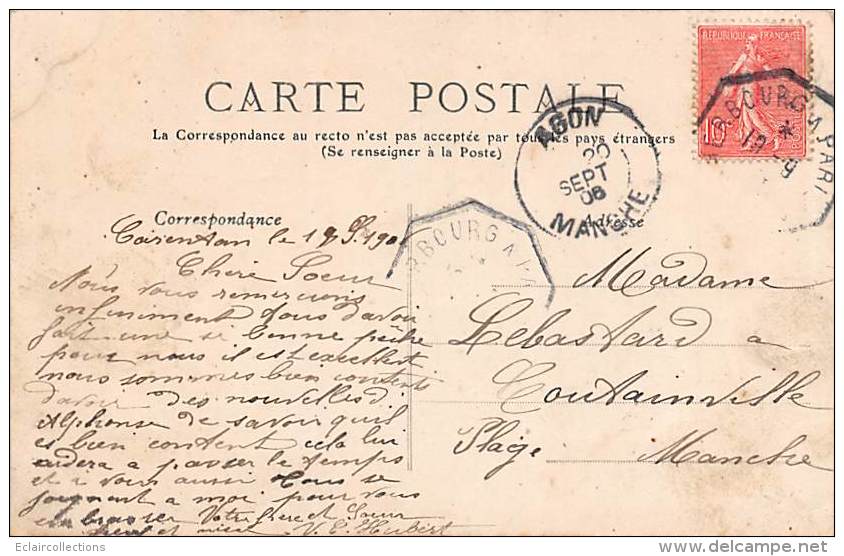 RÉPUBLIQUE FRANÇAISE
10
CHERBOURG A PARIS
CARTE POSTALE
La Correspondance au recto n'est pas acceptée par tous les pays étrangers
(Se renseigner à la Poste)
AGON
20
SEPT
06
MANCHE
Correspondance
Adresse
RBOURG A PA
Carentan le 19
Chère Soeur
Nous vous remercions
infiniment tous d'avoir
fait une si bonne pêche
pour nous il est excellent
nous sommes bien contents
d'avoir des nouvelles d'
Alphonse de savoir qu'il
es bien content cela lui
aidera a passer le temps
et a vous aussi tous se
joignent a moi pour vous
embrasser Votre frère et Soeur
V. E. Hubert
Madame
Lebastard a
Coutainville
Plage, Manche
Eclaircollections
www.delcampe.net